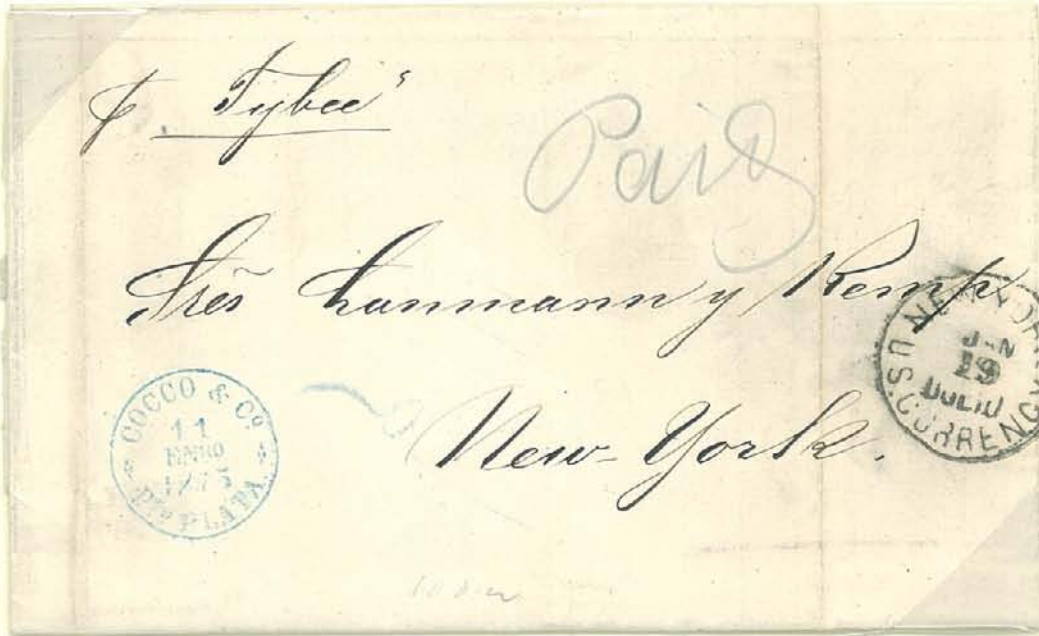 p. "Tybee"
Paid
Sres Lanmann y Kemp
New-York.
COCCO & Co.
11
ENERO
1875
Pto. PLATA.
NEW YORK
JAN
19
DUE 10
U.S. CURRENCY